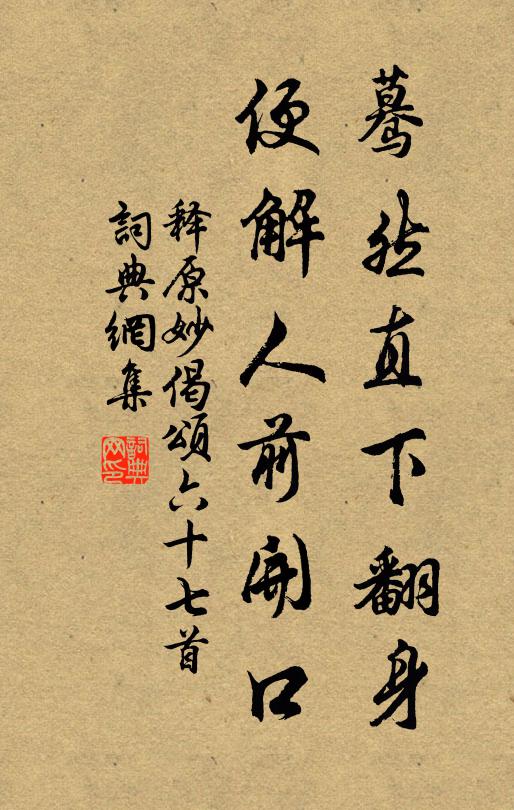 驀然直下翻身
便解人前開口
释原妙偈頌六十七首
詞典網集
詞典
网印